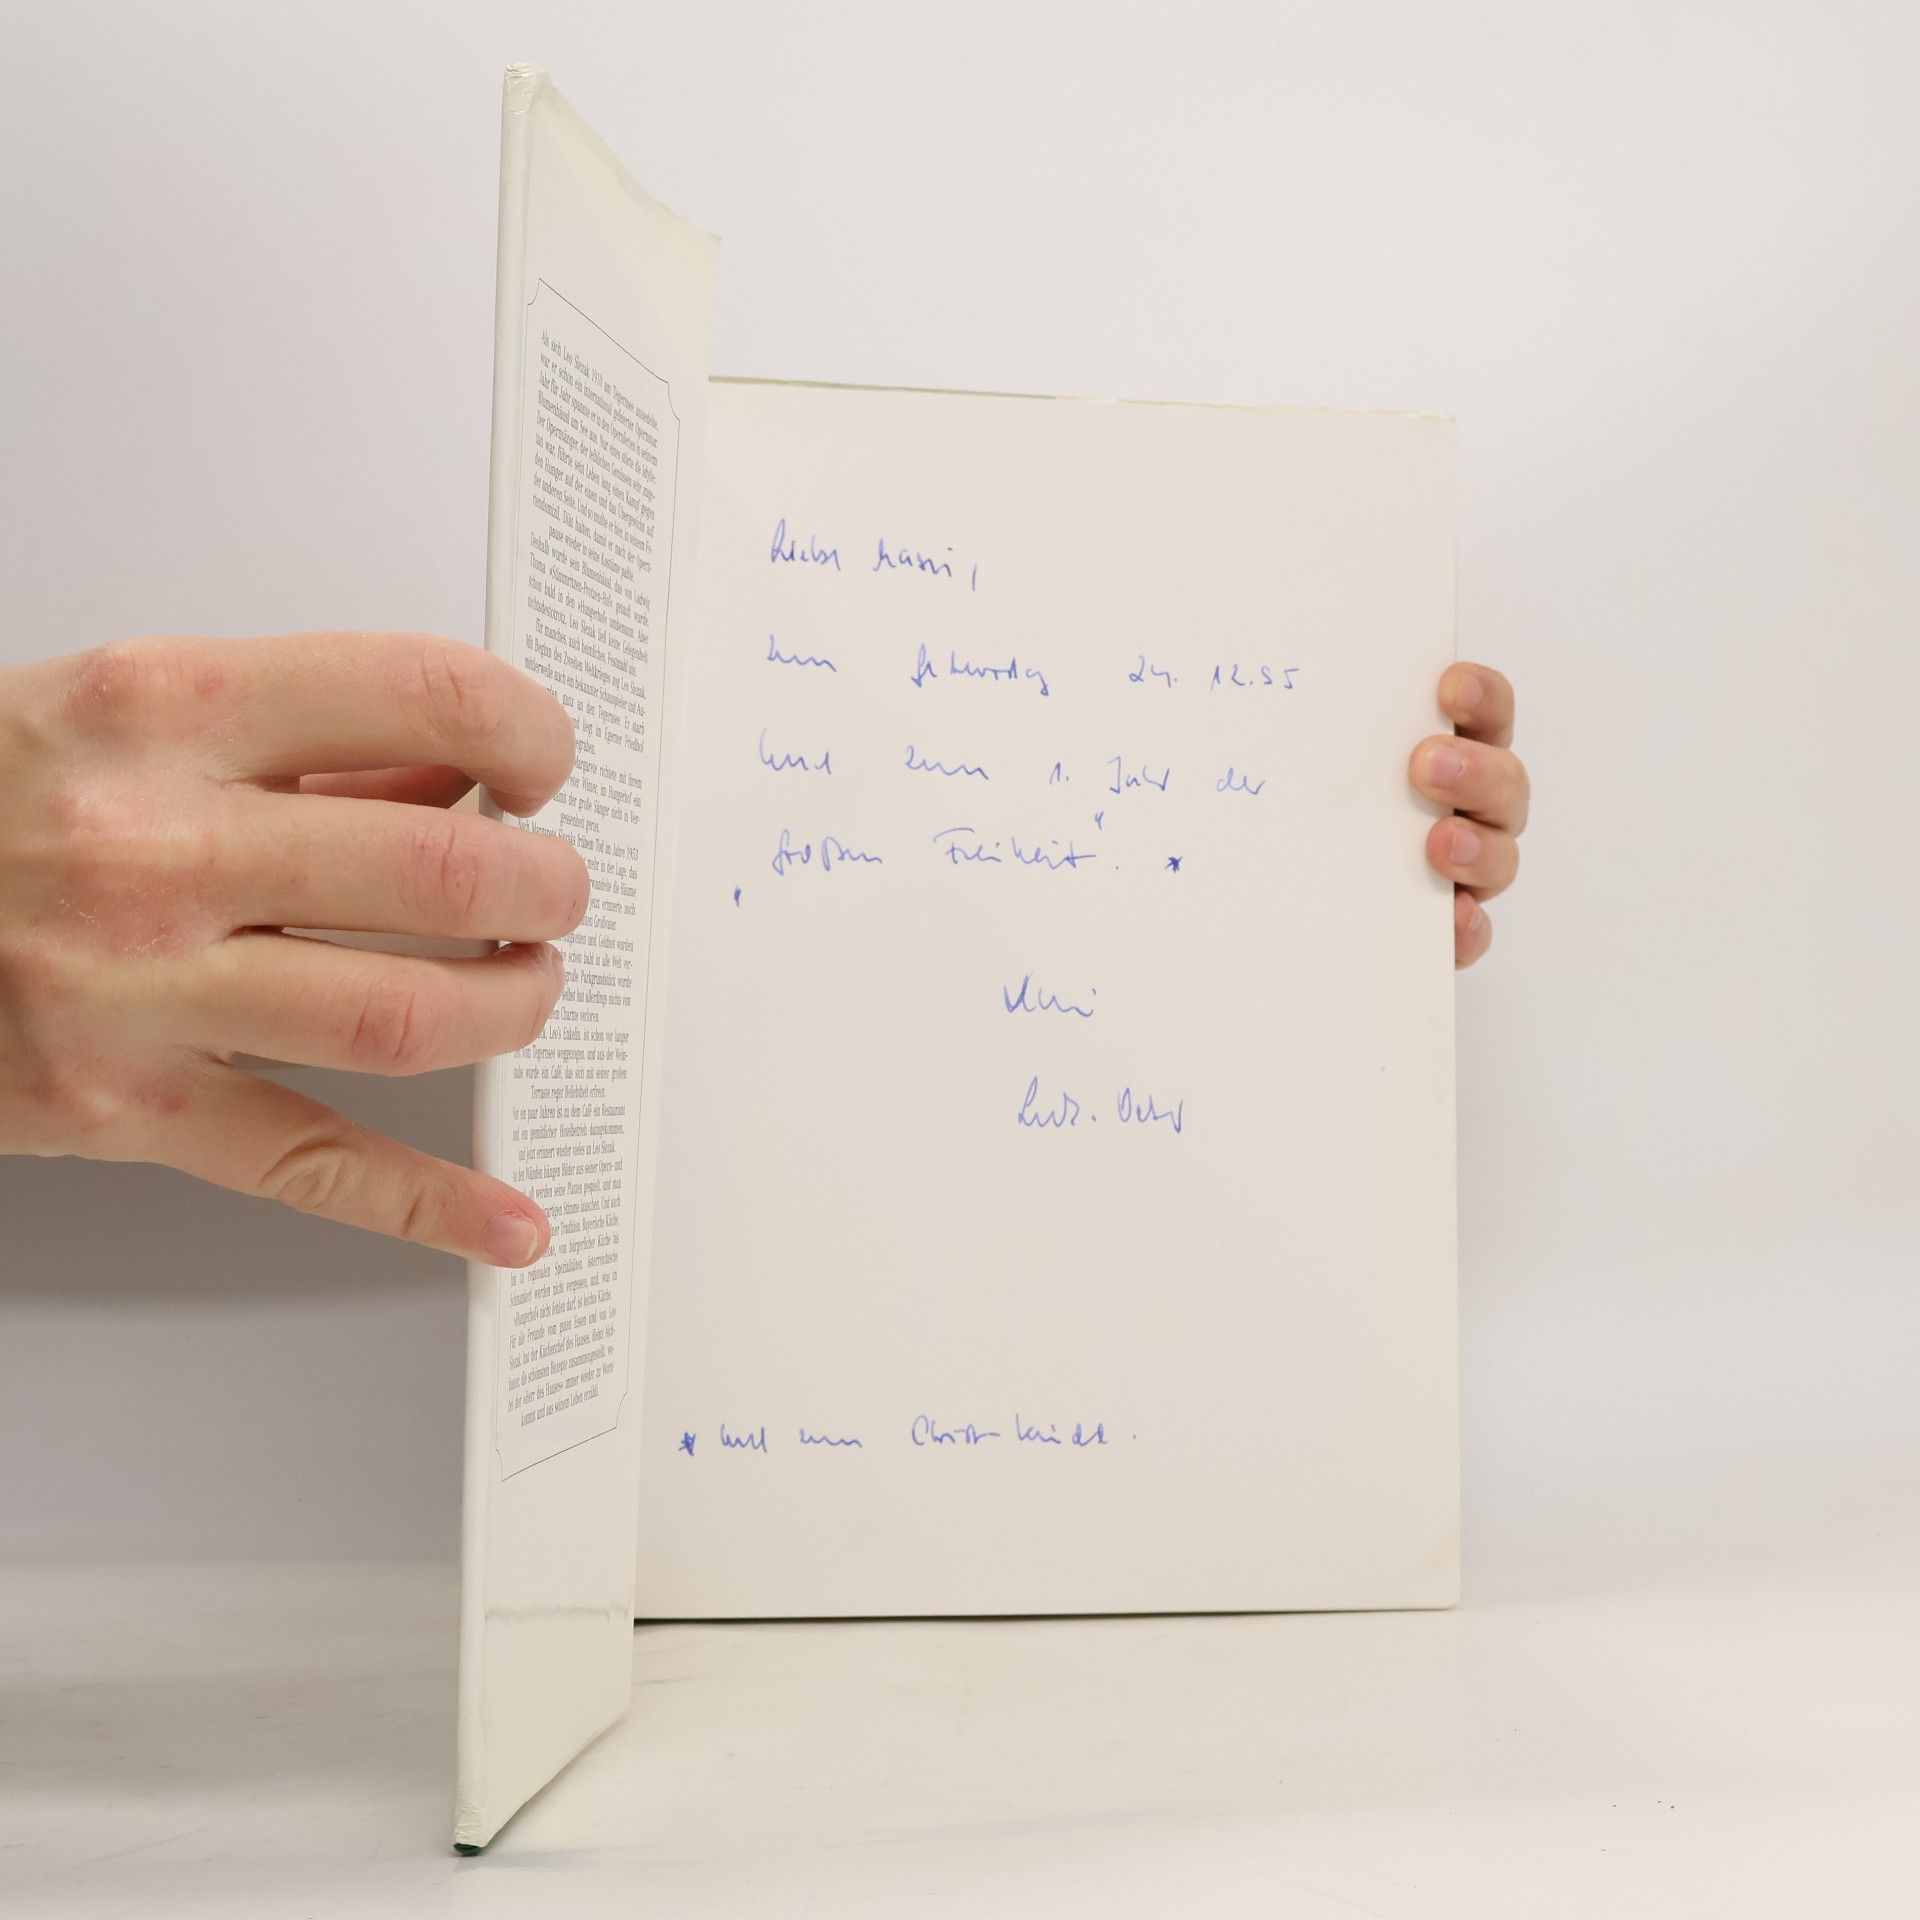 Als sich Leo Slezak 1910 am Tegernsee ansiedelte,
war er schon ein international gefeierter Opernstar.
Jahr für Jahr spannte er in den Opernferien in seinem
Blumenhäusl am See aus. Nur eines störte die Idylle:
Der Opernsänger, der leiblichen Genüssen sehr zuge-
tan war, führte sein Leben lang einen Kampf gegen
den Hunger auf der einen und das Übergewicht auf
der anderen Seite. Und so mußte er hier, in seinem Fe-
riendomizil, Diät halten, damit er nach der Opern-
pause wieder in seine Kostüme paßte.
Deshalb wurde sein Blumenhäusl, das von Ludwig
Thoma »Stimmritzen-Protzen-Hof« getauft wurde,
schon bald in den »Hungerhof« umbenannt. Aber
nichtsdestotrotz, Leo Slezak ließ keine Gelegenheit
für manches, auch heimliches Festmahl aus.
Mit Beginn des Zweiten Weltkrieges zog Leo Slezak,
mittlerweile auch ein bekannter Schauspieler und Au-
ganz an den Tegernsee. Er starb
und liegt im Egerner Friedhof
begraben.
Margarete richtete mit ihrem
Peter Winter im Hungerhof ein
damit der große Sänger nicht in Ver-
gessenheit geriet.
Nach Margarete Slezaks frühem Tod im Jahre 1953
mehr in der Lage, das
verwandelte die Räume
jetzt erinnerte noch
Großvater.
und Geldnot wurden
schon bald in alle Welt ver-
große Parkgrundstück wurde
selbst hat allerdings nichts von
Charme verloren.
Leo's Enkelin, ist schon vor langer
von Tegernsee weggezogen, und aus der Wein-
stube wurde ein Café, das sich mit seiner großen
Terrasse reger Beliebtheit erfreut.
Vor ein paar Jahren ist zu dem Café ein Restaurant
und ein gemütlicher Hotelbetrieb dazugekommen,
und jetzt erinnert wieder vieles an Leo Slezak.
An den Wänden hängen Bilder aus seiner Opern- und
werden seine Platten gespielt, und man
Stimme lauschen. Und auch
Tradition. Bayerische Küche,
von bürgerlicher Küche bis
hin zu regionalen Spezialitäten, österreichische
Schmankerl werden nicht vergessen, und, was im
»Hungerhof« nicht fehlen darf, ist leichte Küche.
Für alle Freunde vom guten Essen und von Leo
Slezak hat der Küchenchef des Hauses, Heinz Aich-
die schönsten Rezepte zusammengestellt, wo-
bei der »Herr des Hauses« immer wieder zu Worte
kommt und aus seinem Leben erzählt.
Liebe
zum Geburtstag 24. 12. 95
und zum 1. Jahr der
„großen Freiheit“. *
* und zum Christkindl.